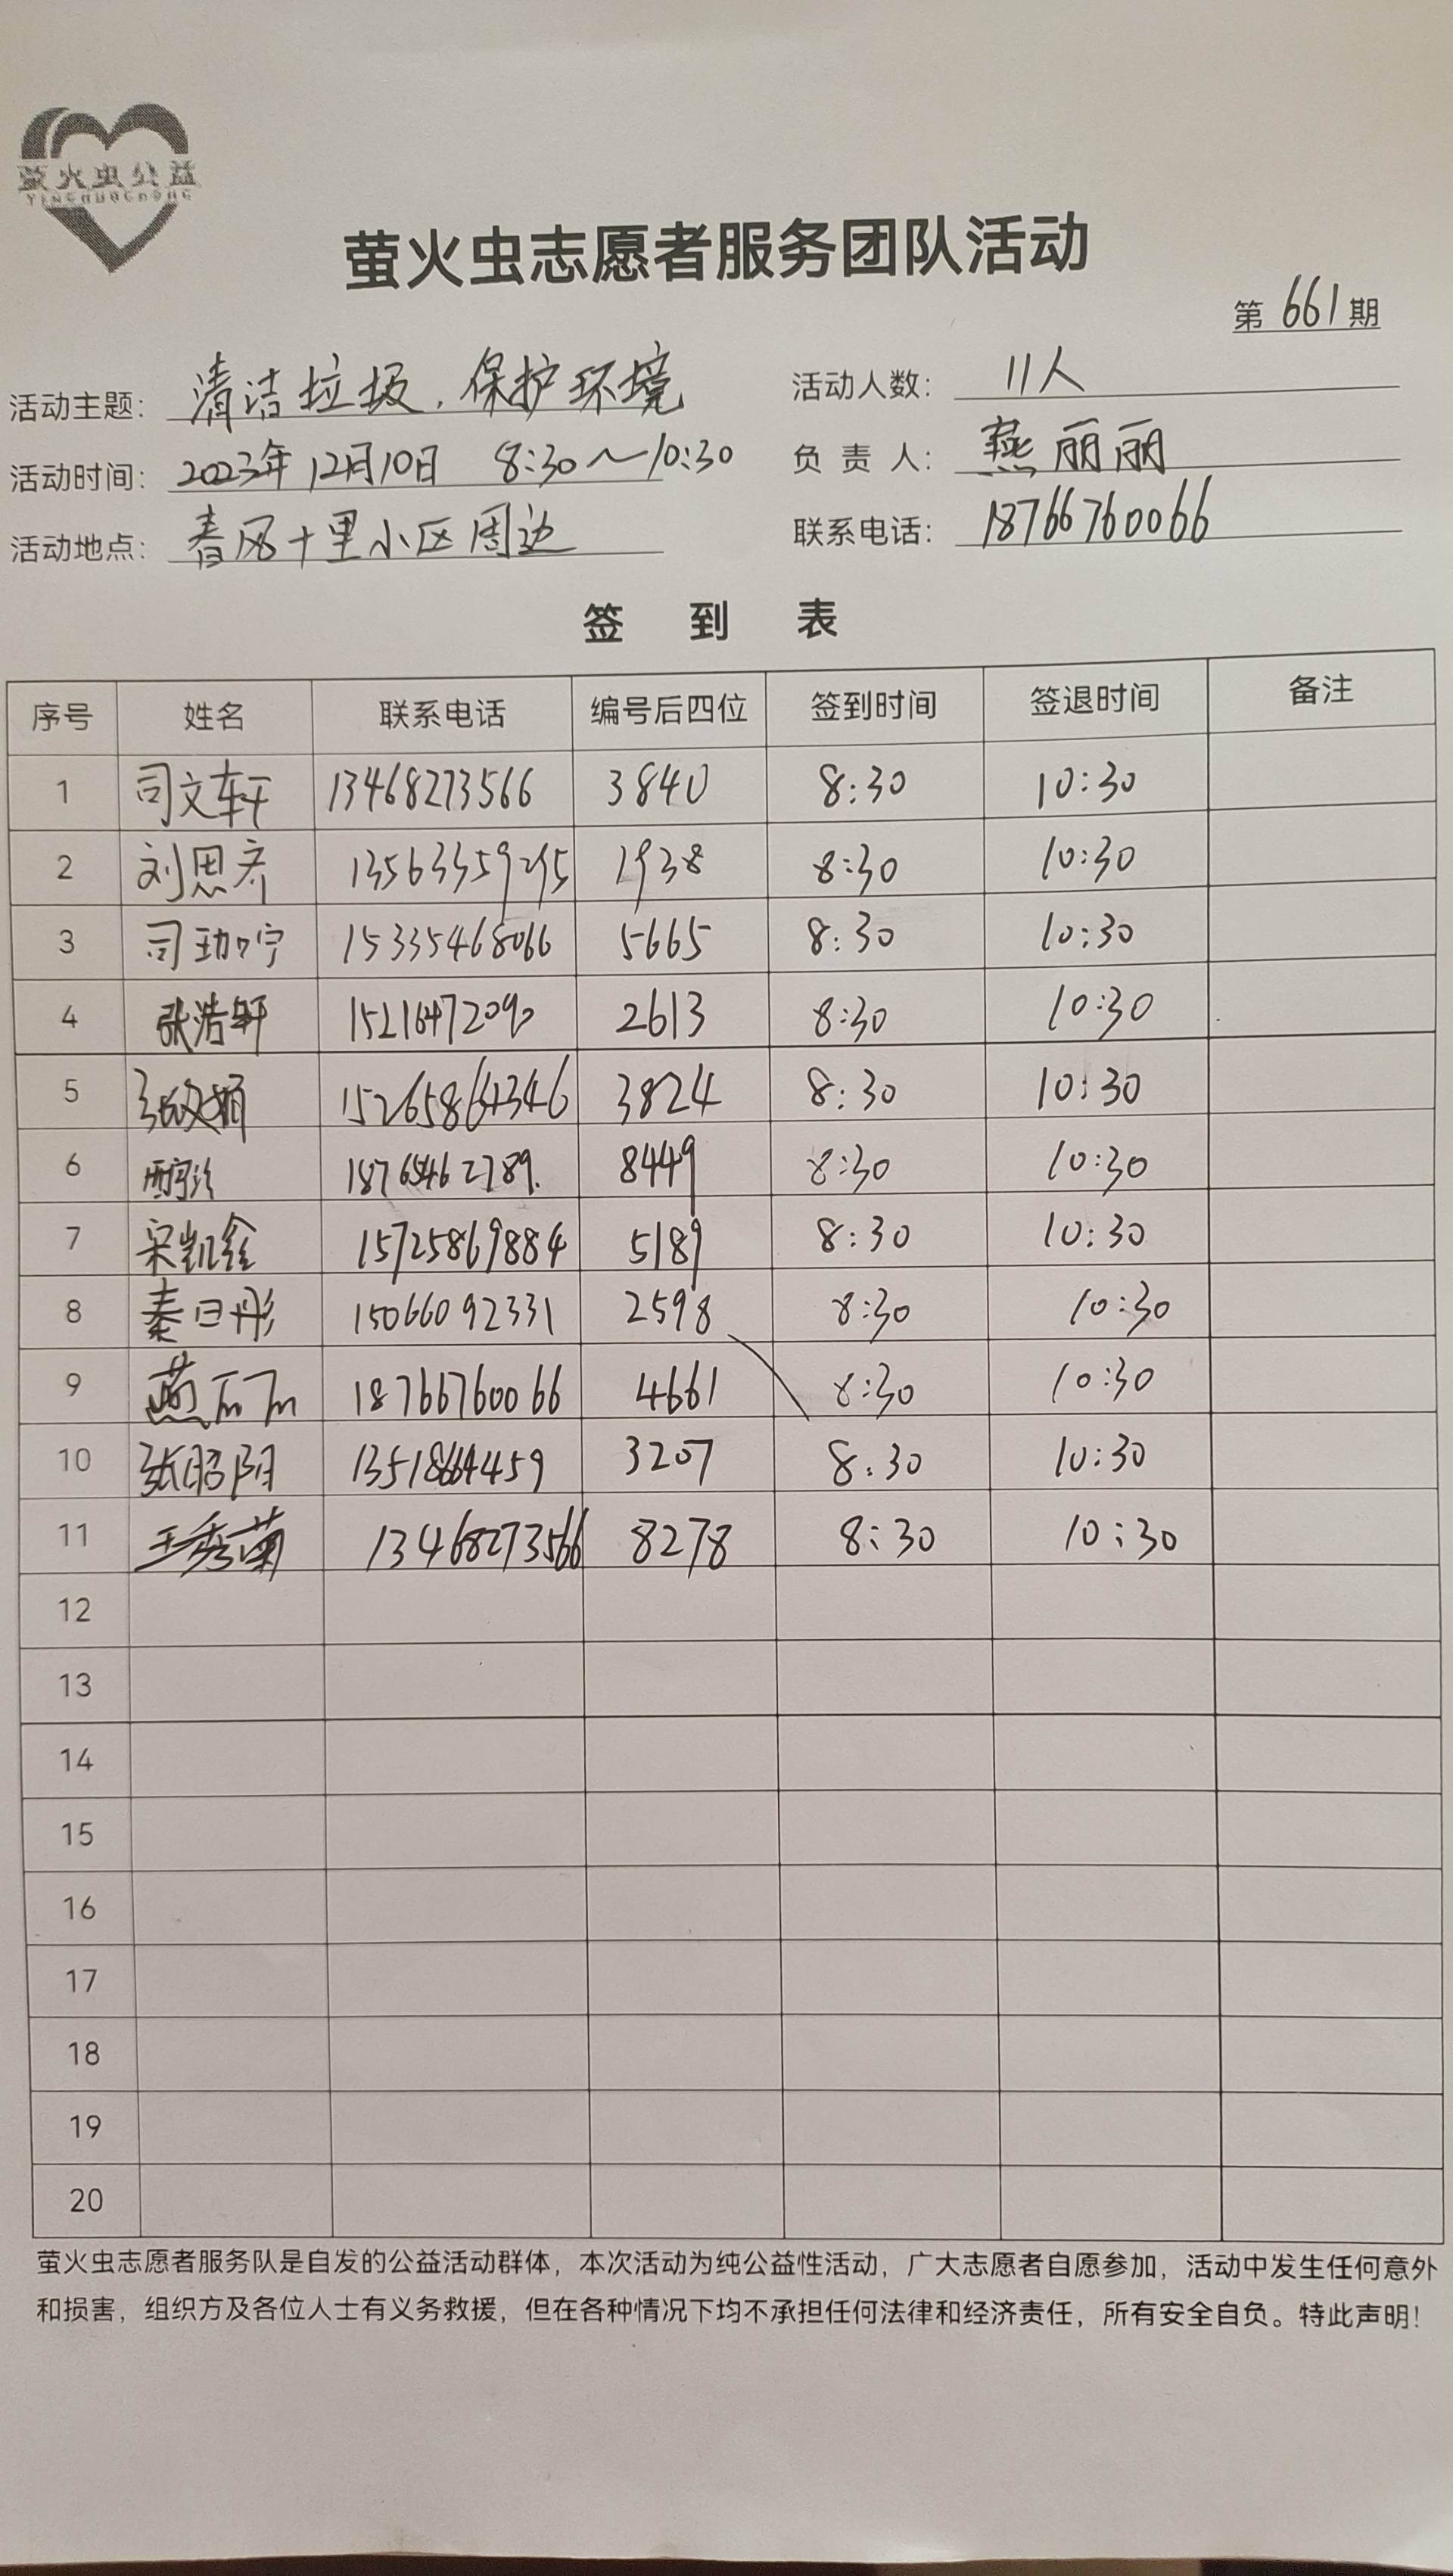 萤火虫公益
YINGHUOCHONG
萤火虫志愿者服务团队活动
第 661 期
活动主题: 清洁垃圾, 保护环境 活动人数: 11人
活动时间: 2023年12月10日 8:30～10:30 负责人: 燕丽丽
活动地点: 春风十里小区周边 联系电话: 18766760066
签到表
序号 姓名 联系电话 编号后四位 签到时间 签退时间 备注
1 司文轩 13468273566 3840 8:30 10:30
2 刘思齐 13563359295 1938 8:30 10:30
3 司 15335468066 5665 8:30 10:30
4 张浩轩 15216472090 2613 8:30 10:30
5 15265864346 3824 8:30 10:30
6 18765462789. 8449 8:30 10:30
7 宋凯鑫 15725869884 5189 8:30 10:30
8 秦日彤 15066092331 2598 8:30 10:30
9 燕丽丽 18766760066 4661 8:30 10:30
10 张昭阳 13518664459 3207 8:30 10:30
11 王秀菊 13468273566 8278 8:30 10:30
12
13
14
15
16
17
18
19
20
萤火虫志愿者服务队是自发的公益活动群体，本次活动为纯公益性活动，广大志愿者自愿参加，活动中发生任何意外
和损害，组织方及各位人士有义务救援，但在各种情况下均不承担任何法律和经济责任，所有安全自负。特此声明！